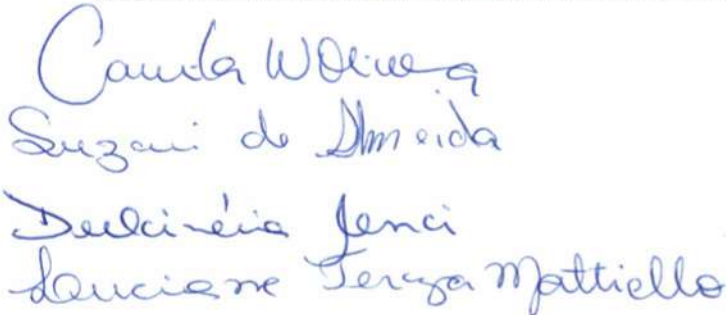 Camila W Oliveira
Suzani de Almeida
Dulcinéia Jenci
Luciane Tereza Mattiello